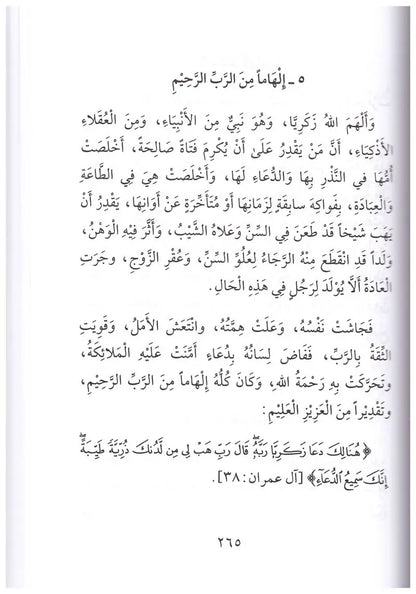 ٥ ـ إِلْهَاماً مِنَ الرَّبِّ الرَّحِيْمِ
وَأَلْهَمَ اللهُ زَكَرِيَّا، وَهُوَ نَبِيٌّ مِنَ الْأَنْبِيَاءِ، وَمِنَ الْعُقَلَاءِ
الْأَذْكِيَاءِ، أَنَّ مَنْ يَقْدِرُ عَلَىٰ أَنْ يُكْرِمَ فَتَاةً صَالِحَةً، أَخْلَصَتْ
أُمُّهَا فِي النَّذْرِ بِهَا وَالدُّعَاءِ لَهَا، وَأَخْلَصَتْ هِيَ فِي الطَّاعَةِ
وَالْعِبَادَةِ، بِفَوَاكِهَ سابِقَةٍ لِزَمَانِهَا أَوْ مُتَأَخِّرَةٍ عَنْ أَوَانِهَا، يَقْدِرُ أَنْ
يَهَبَ شَيْخاً قَدْ طَعَنَ فِي السِّنِّ وَعَلَاهُ الشَّيْبُ، وَأَثَّرَ فِيهِ الْوَهْنُ،
وَلَداً قَدِ انْقَطَعَ مِنْهُ الرَّجَاءُ لِعُلُوِّ السِّنِّ، وَعُقْرِ الزَّوْجِ، وَجَرَتِ
الْعَادَةُ أَلَّا يُوْلَدَ لِرَجُلٍ فِي هَذِهِ الْحَالِ.
فَجَاشَتْ نَفْسُهُ، وَعَلَتْ هِمَّتُهُ، وانْتَعَشَ الأَمَلُ، وَقَوِيَتِ
الثِّقَةُ بِالرَّبِّ، فَفَاضَ لِسَانُهُ بِدُعَاءٍ أَمَّنَتْ عَلَيْهِ الْمَلَائِكَةُ،
وتَحَرَّكَتْ بِهِ رَحْمَةُ اللهِ، وَكَانَ كُلُّهُ إِلْهَاماً مِنَ الرَّبِّ الرَّحِيْمِ،
وَتَقْدِيْراً مِنَ الْعَزِيْزِ الْعَلِيْمِ:
﴿ هُنَالِكَ دَعَا زَكَرِيَّا رَبَّهُۥۖ قَالَ رَبِّ هَبْ لِي مِن لَّدُنكَ ذُرِّيَّةً طَيِّبَةًۖ
إِنَّكَ سَمِيعُ الدُّعَآءِ ﴾ [آل عمران: ٣٨].
٢٦٥